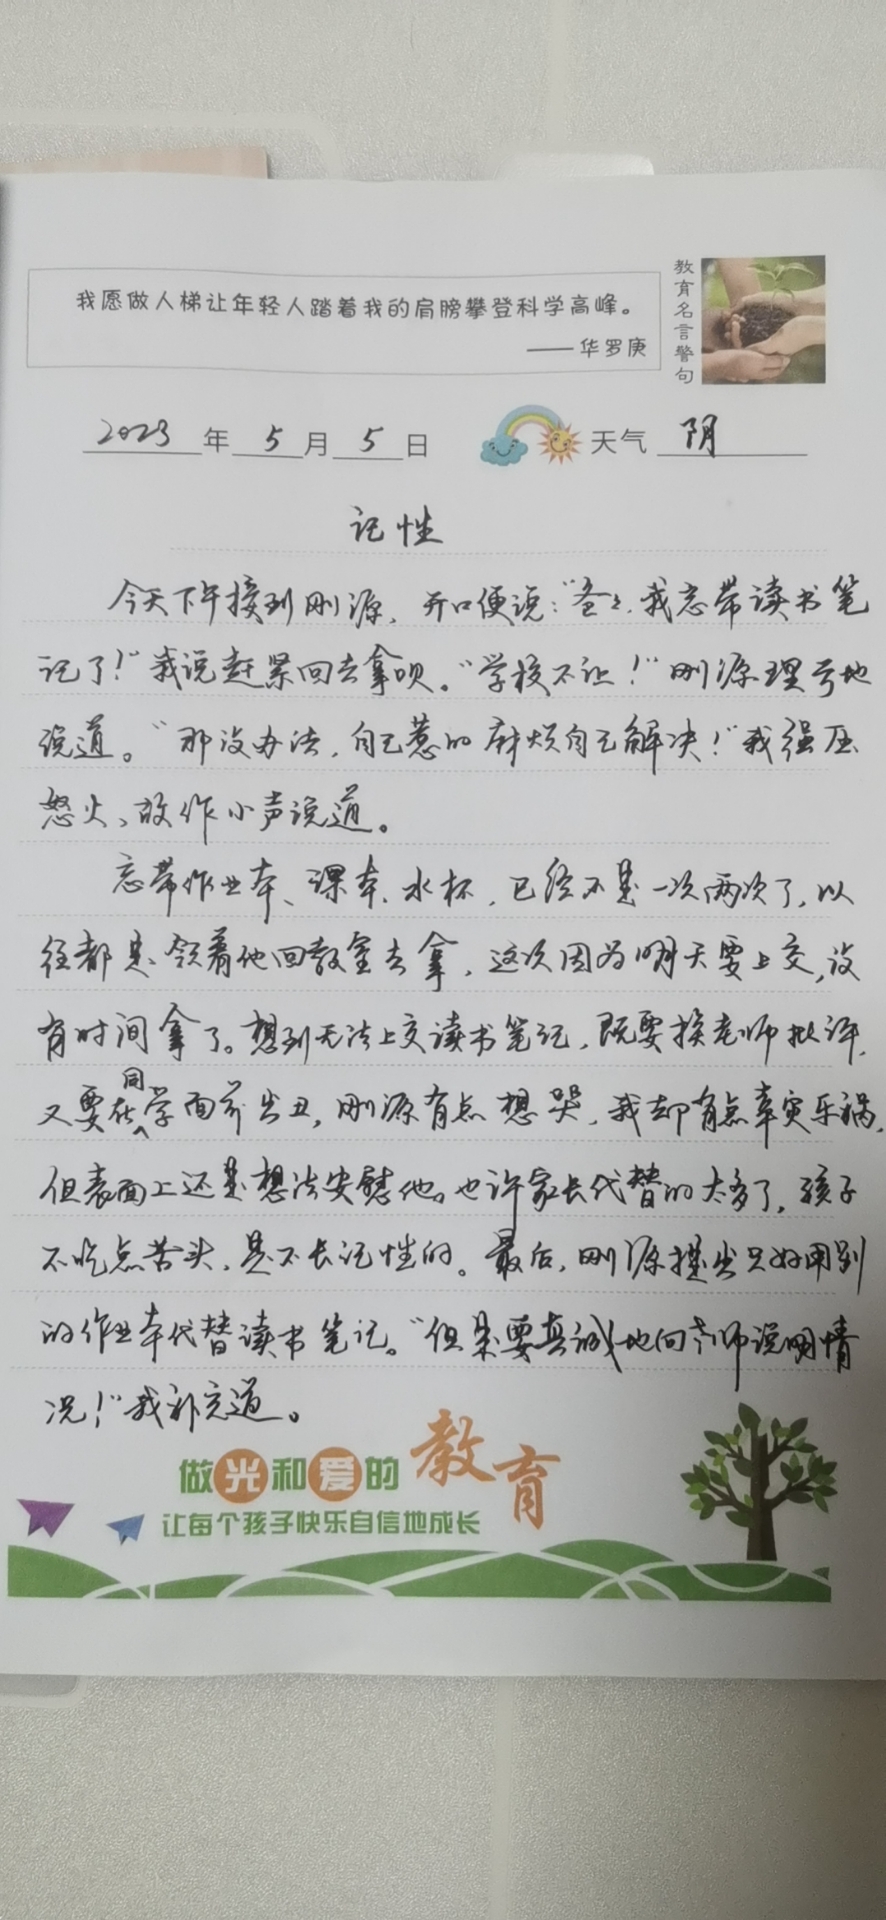 我愿做人梯让年轻人踏着我的肩膀攀登科学高峰。
——华罗庚
教育名言警句
2023年5月5日 天气 阴
记性
今天下午接到刚源，开口便说：“爸爸，我忘带读书笔
记了！”我说赶紧回去拿呗。“学校不让！”刚源理亏地
说道。“那没办法，自己惹的麻烦自己解决！”我强压
怒火、故作小声说道。
忘带作业本、课本、水杯，已经不是一次两次了，以
往都是领着他回教室去拿，这次因为明天要上交，没
有时间拿了。想到无法上交读书笔记，既要挨老师批评，
又要在同学面前出丑，刚源有点想哭，我却有点幸灾乐祸，
但表面上还是想法安慰他。也许家长代替的太多了，孩子
不吃点苦头，是不长记性的。最后，刚源提出只好用别
的作业本代替读书笔记。“但是要真诚地向老师说明情
况！”我补充道。
做光和爱的教育
让每个孩子快乐自信地成长